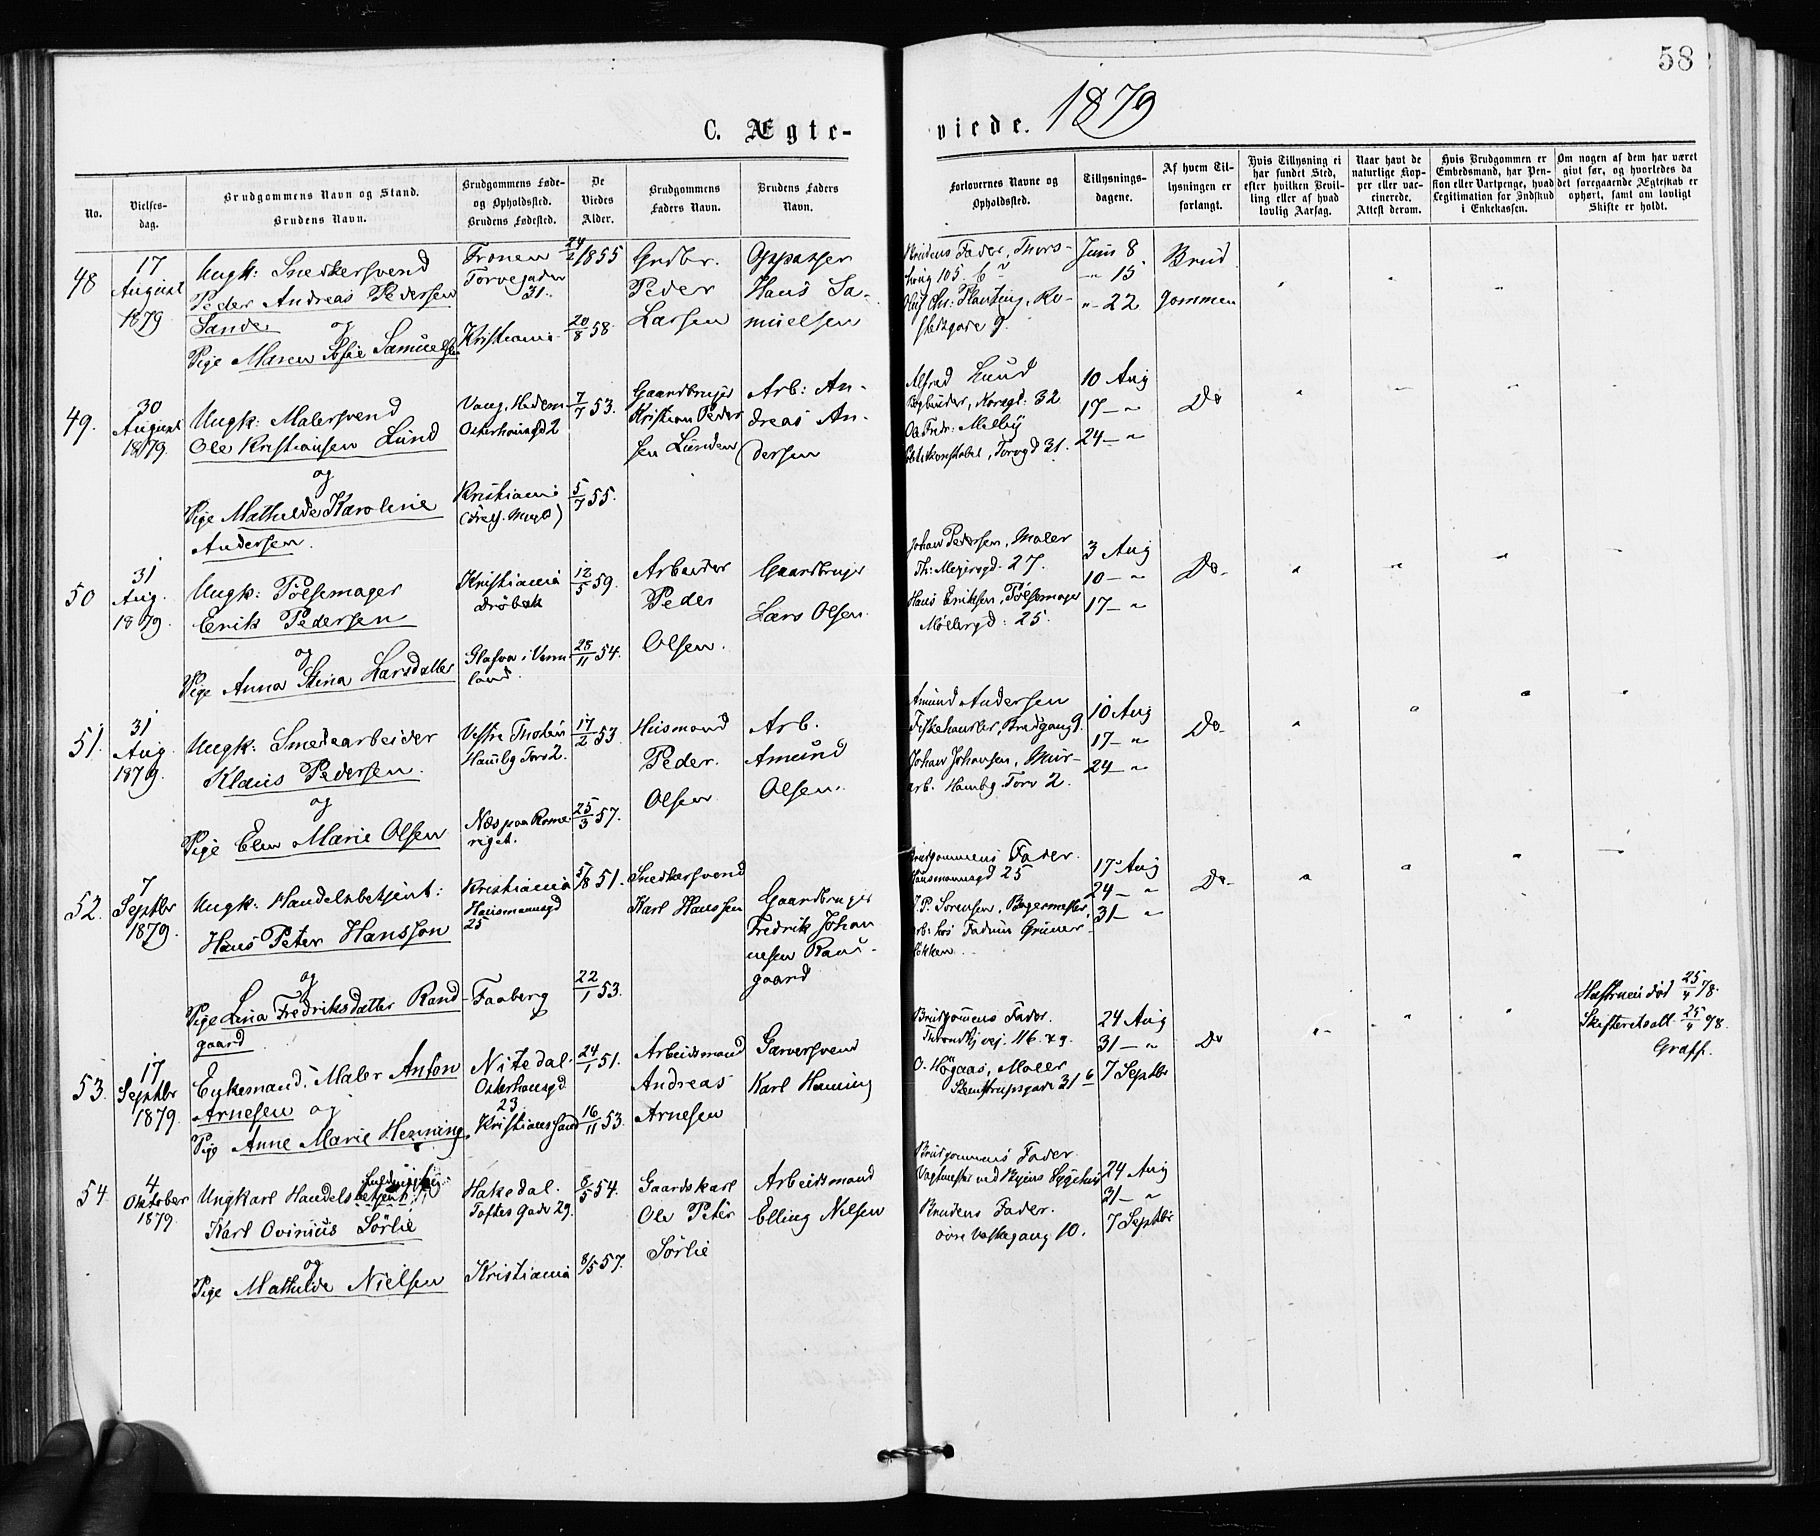 58
C. Ægte-
viede. 1879
No.
Vielses-
dag.
Brudgommens Navn og Stand.
Brudens Navn.
Brudgommens Føde-
og Opholdssted.
Brudens Fødested.
De
Viedes
Alder.
Brudgommens
Faders Navn.
Brudens Faders
Navn.
Forlovernes Navne og
Opholdssted.
Tillysnings-
dagene.
Af hvem Til-
lysningen er
forlangt.
Hvis Tillysning ei
har fundet Sted,
efter hvilken Bevil-
ling eller af hvad
lovlig Aarsag.
Naar havt de
naturlige Kop-
per eller vac-
cinerede.
Attest derom.
Hvis Brudgommen er
Embedsmand, har Pen-
sion eller Vartpenge, hvad
Legitimation for Indskud
i Enkekassen.
Om nogen af dem har været
givt før, og hvorledes da
det foregaaende Ægteskab er
ophørt, samt om lovligt
Skifte er holdt.
48
17
August
1879
Ungk: Snedkersvend
Peder Andreas Pedersen
Sande
og
Pige Maren Sofie Samuelsen
Fronen
Torvegaden
31.
Kristiania
24/2 1855
20/8 58.
Peder
Larsen
Oppasser
Hans Sa-
muelsen
Brudens Fader, Thors-
105. b
Chr: Plauting, Ro-
senkrgade 9.
Juni 8
" 15
" 22
Brud
gommen
49.
30
August
1879.
Ungk: Malersvend
Ole Kristiansen Lund
og
Pige Mathilde Karoline
Andersen.
Vang, Hedem
Osterhausgd 2
Kristiania
7/7 53.
5/7 55.
Gaardbruger
Kristian Peder
sen Lunden
Arb: An-
dreas An-
dersen
Alfred Lund
Bogbinder, Korsgt: 32
Fredr: Melby
Torvgd 31.
10 Aug
17 - "
24 - "
Do
50
31
Aug.
1879.
Ungk: Pølsemager
Erik Pedersen
og
Pige Anna Stina Larsdatter
Kristiania
Drøbak
Glafva i Verm-
land.
12/5 59.
28/11 54.
Arbeider
Peder
Olsen.
Gaardbruger
Lars Olsen.
Johan Pedersen, Maler
Th: Meyersgd. 27.
Hans Eriksen, Pølsemager
Møllergd: 25.
3 Aug
10 - "
17 - "
Do-
51.
31
Aug.
1879.
Ungk: Smedearbeider
Klaus Pedersen.
og
Pige Elen Marie Olsen
Vestre Thoten
Hambg Torv 2.
Næs paa Rome-
riget.
17/2 53
25/3 57.
Husmand
Peder.
Olsen
Arb.
Amund
Olsen.
Amund Andersen
Fiskehandler, Bredgang 9.
Johan Johansen, Mur-
arb. Hambg. Torv 2.
10 Aug
17 - "
24 - "
Do-
52.
7
Septbr
1879.
Ungk: Handelsbetjent:
Hans Peter Hansson
og
Pige Lina Fredriksdatter Rand
gaard
Kristiania
Hausmannsgd
25
Faaberg
5/8 51.
22/1 53.
Snedkersvend
Karl Hanssen
Gaardbruger
Fredrik Johan
nesen Ran-
gaard
Brudgommens Fader.
Hausmannsgd 25
J. P. Sørensen, Bogermester
arb: hos Grüner
løkken.
17 Aug
24 - "
31 - "
Do-
53.
17
Septbr
1879.
Enkemand, Maler Anton
Arnesen og
Pige Anne Marie Henning.
Nitedal.
Osterhausgd
23
Kristianssand
24/1 51.
16/11 53.
Arbeidsmand
Andreas
Arnesen
Garversvend
Karl Henning
Brudgommens Fader.
Throndhj vej. 116.
O. Høgaas, Maler
Stenstrupsgade 31 b
24 Aug
31 - "
7 Septbr
Do
Hustruen død 25/4 78.
Skifteretsatt. 25/4 78.
54.
4
Oktober
1879.
Ungkarl Handelsbetjent
Karl Ovinius Sørlie
og
Pige Mathilde Nielsen
Hakedal.
Toftes Gade 29.
Kristiania
8/5 54.
8/5 57.
Gaardskarl
Ole Peter
Sørlie
Arbeidsmand
Elling Nielsen
Brudgommens Fader.
Vagtmester ved Byens Sygehus
Brudens Fader.
øvre Vaskegang 10.
24 Aug
31 - "
7 Septbr